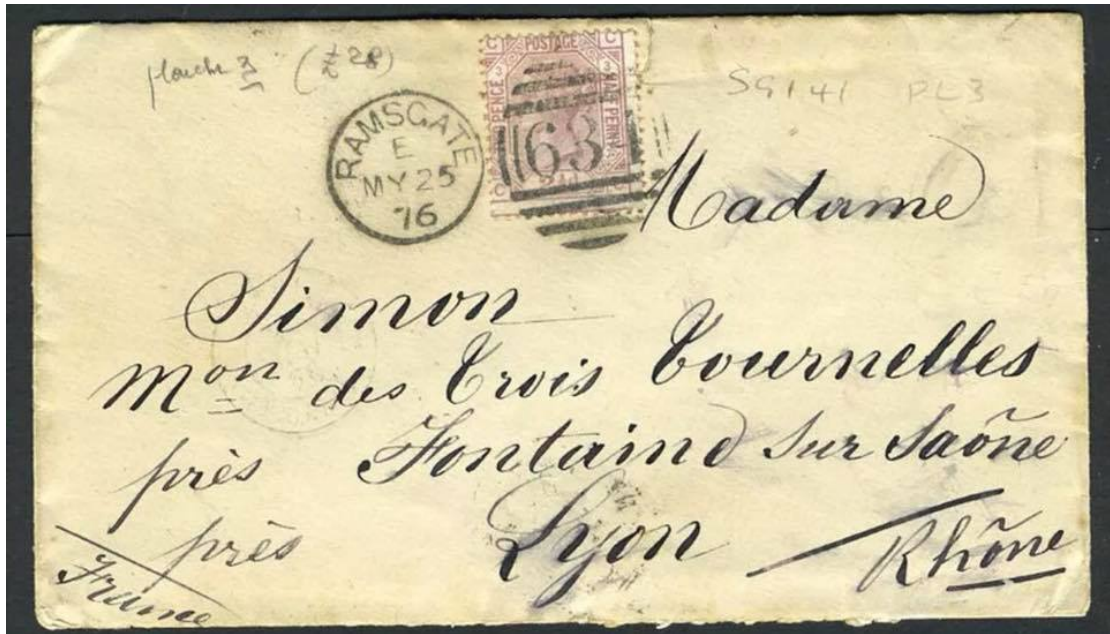 planche 3 (£ 28)
SG141 PL3
POSTAGE
PENCE
HALF PENNY
C C
3 3
RAMSGATE
E
MY 25
76
63
Madame
Simon
Mon des Trois Tournelles
près Fontaind sur Saône
près Lyon Rhône
France